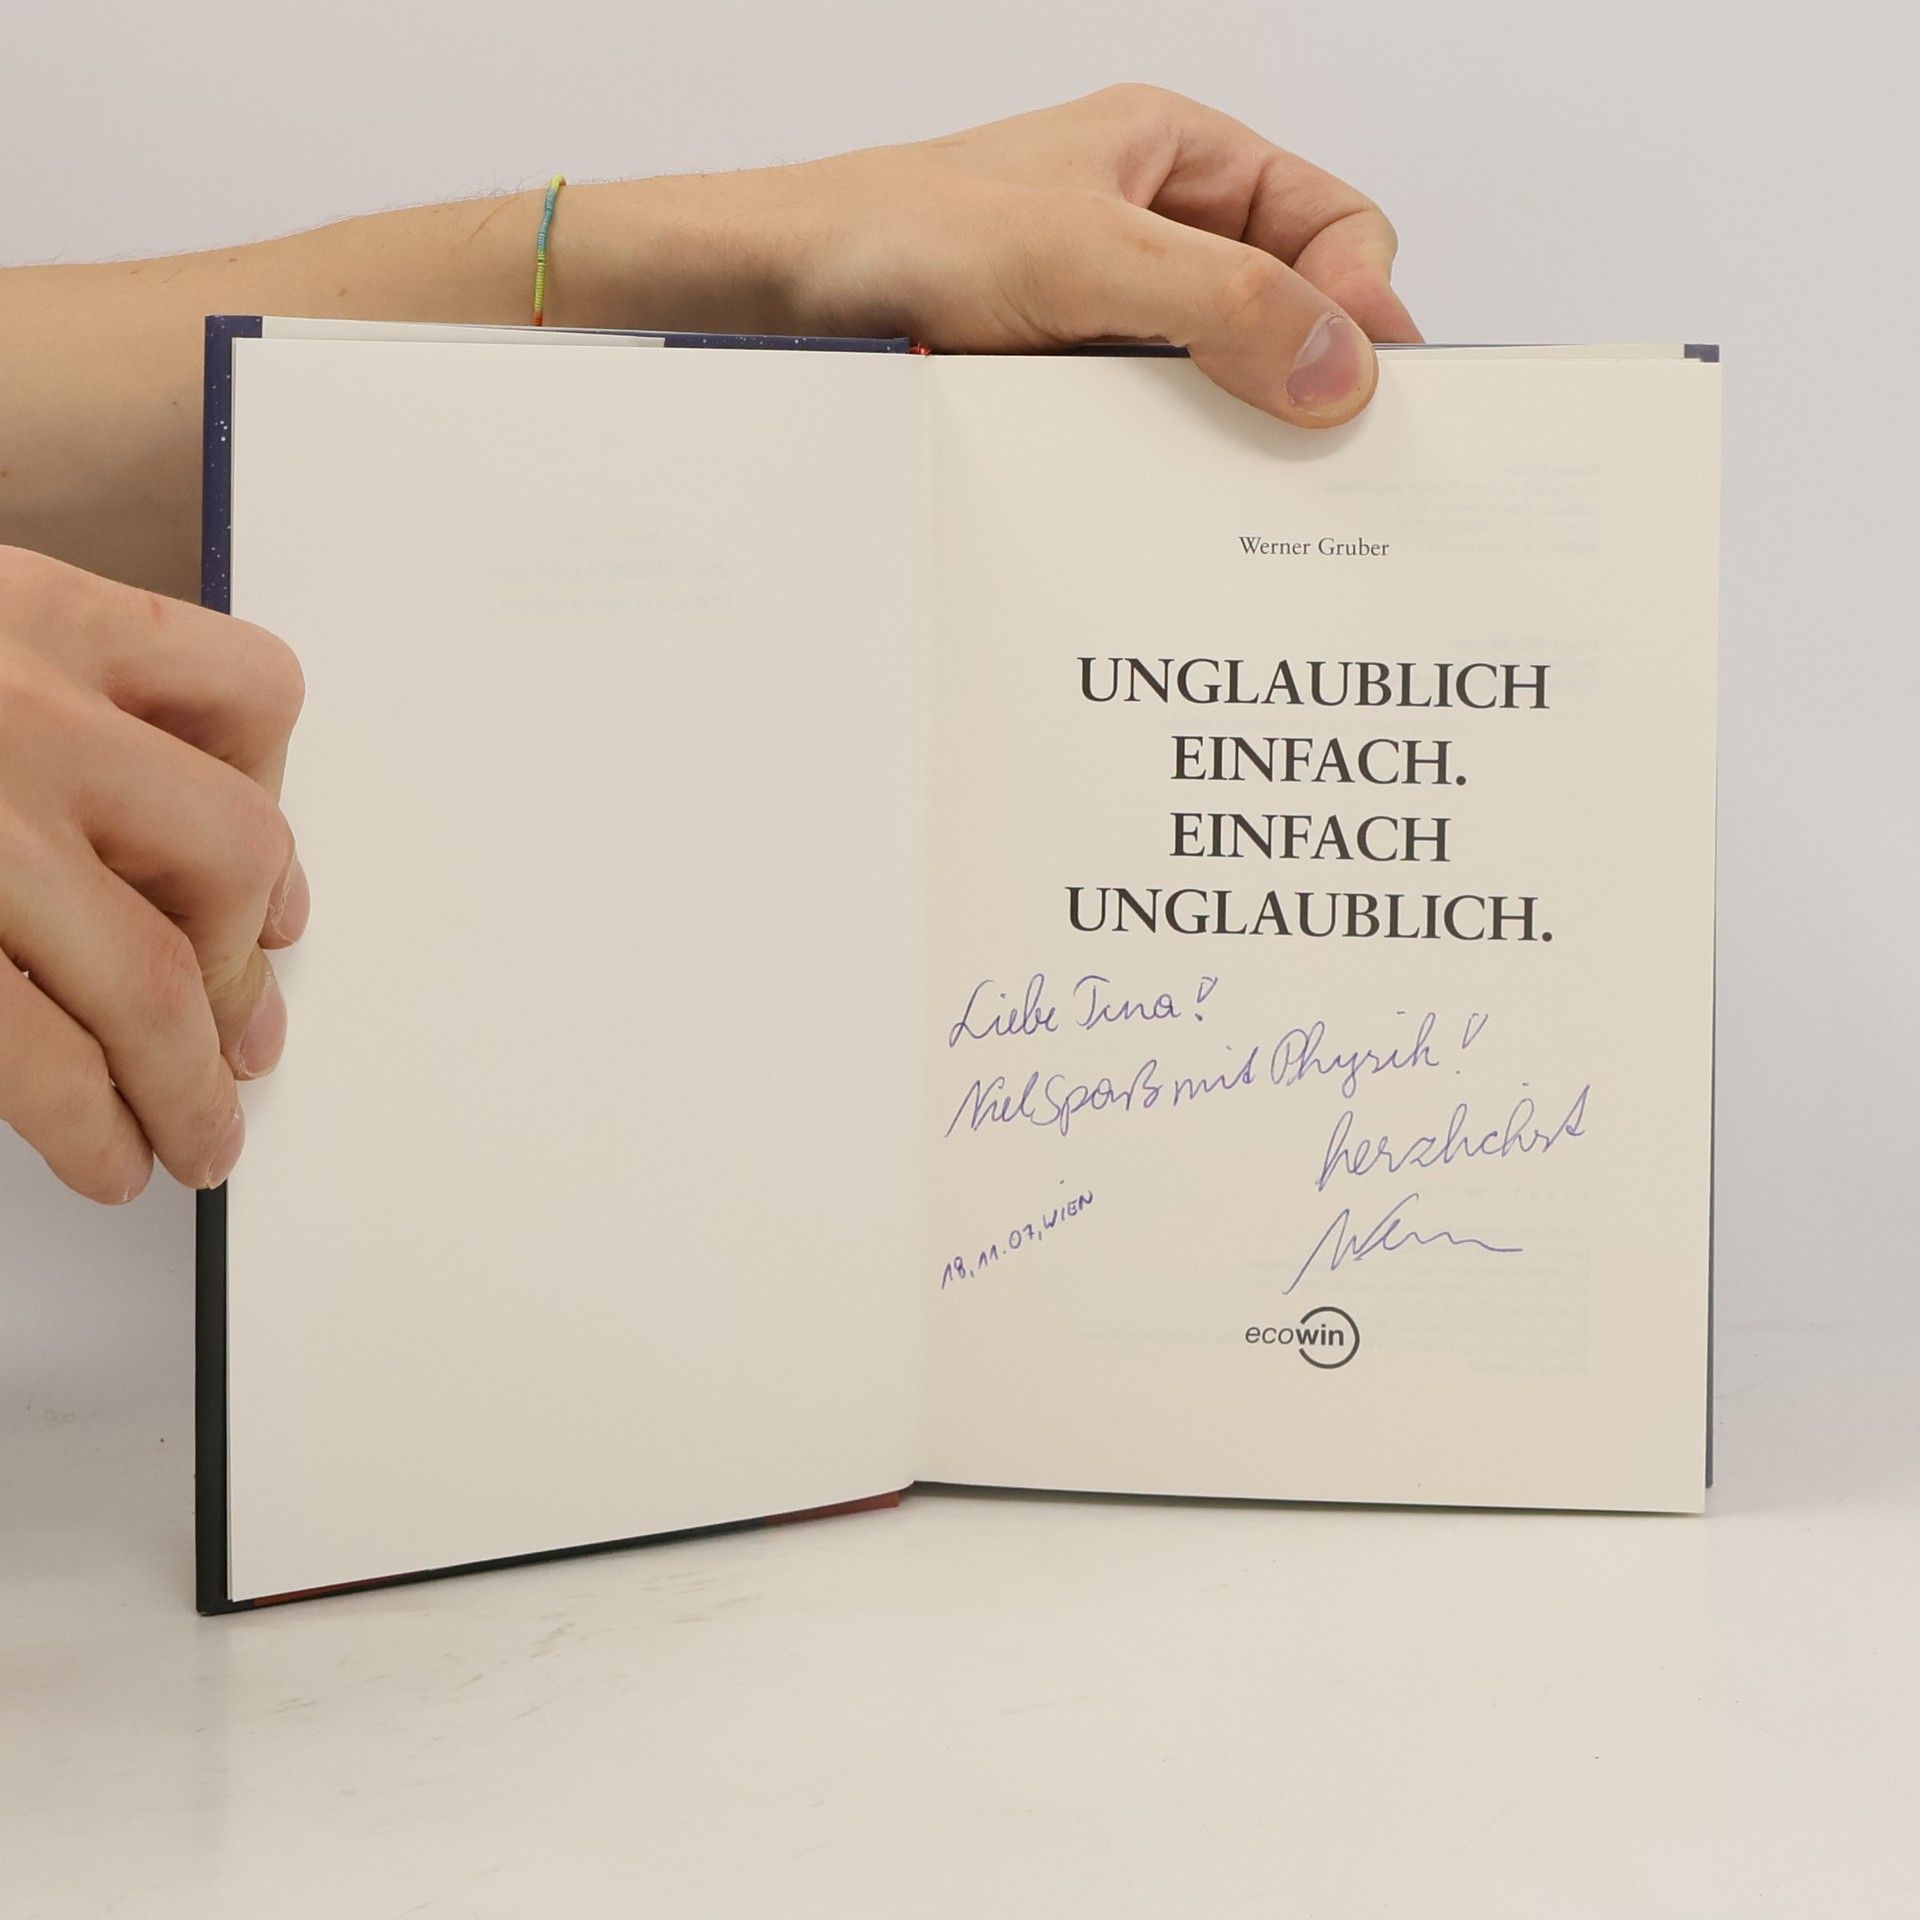 Werner Gruber
UNGLAUBLICH
EINFACH.
EINFACH
UNGLAUBLICH.
Liebe Tina!
Viel Spaß mit Physik!
herzlichst
18.11.07, WIEN
ecowin